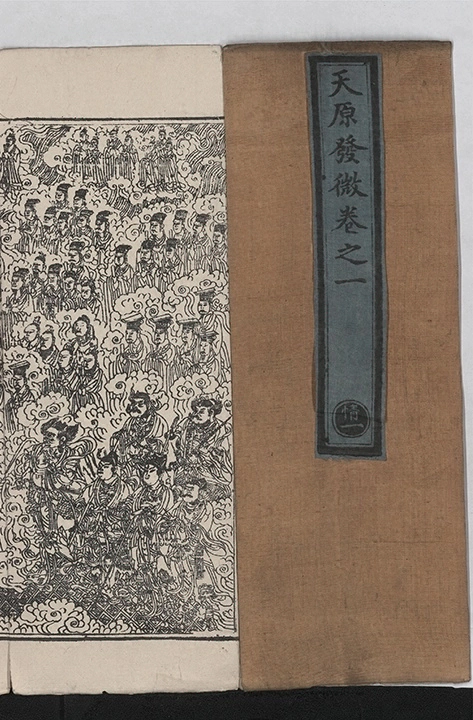 天原發微卷之一